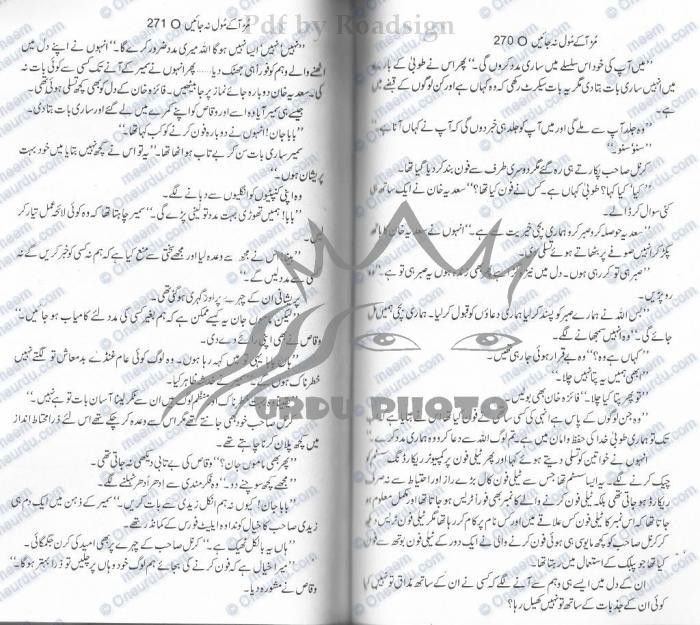 Pdf by Roadsign
مڑ آکے مُول نہ جائیں O 270
”میں آپ کی خود اس سلسلے میں ساری مدد کروں گی۔“ پھر اس نے طوبیٰ کے بارے
میں انہیں ساری بات بتا دی مگر یہ بات سیکرٹ رکھی کہ وہ کہاں ہے اور کن لوگوں کے قبضے میں
ہے۔
”وہ جلد آپ سے ملے گی اور میں آپ کو جلد ہی خبر دوں گی کہ آپ نے کہاں آنا ہے۔“
”سنو سنو۔“
کرنل صاحب پکارتے ہی رہ گئے مگر دوسری طرف سے فون بند کر دیا گیا تھا۔
”کیا کہا؟ طوبیٰ کہاں ہے۔ کس نے فون کیا تھا؟“ سعدیہ خان نے ایک ساتھ ہی
کئی سوال کر ڈالے۔
”سعدیہ حوصلہ کرو صبر کرو ہماری بچی خیریت سے ہے۔“ انہوں نے سعدیہ خان کا ہاتھ
پکڑ کر انہیں صوفے پر بٹھاتے ہوئے تسلی دی۔
”صبر ہی تو کر رہی ہوں۔ دل میں بھی زندہ ہوں یہ صبر ہی تو ہے۔“ وہ
رو پڑیں۔
”بس اللہ نے ہمارے صبر کو پسند کر لیا ہماری دعاؤں کو قبول کر لیا۔ ہماری بچی ہمیں مل
جائے گی۔“ وہ انہیں سمجھانے لگے۔
”کہاں ہے وہ؟“ وہ بے قرار ہوئی جا رہی تھیں۔
”ابھی ہمیں یہ پتا نہیں چلا۔“
”تو پھر پتا کیا چلا؟“ فائزہ خان بھی بولیں۔
”وہ جن لوگوں کے پاس ہے انہی کی کسی ساتھی نے فون کیا تھا اس نے بتایا ہے
تک تو ہماری طوبیٰ خدا کی حفظ و امان میں ہے۔ تم لوگ اللہ سے دعا کرو وہ ہماری مدد کرے۔“
انہوں نے خواتین کو تسلی دیتے ہوئے کہا اور پھر ٹیلی فون پر کمپیوٹر ریکارڈنگ سسٹم
چیک کرنے لگے۔ یہ ایسا سسٹم تھا جس سے ٹیلی فون کال بڑے راز اور احتیاط سے نہ صرف
ریکارڈ ہو جاتی تھی بلکہ ٹیلی فون کرنے والے کا نمبر بھی فوراً ٹریس ہو جاتا تھا اور مکمل معلوم ہو
جاتا تھا کہ اس نمبر کا ٹیلی فون کس علاقے میں اور کس نام پر کام کر رہا تھا مگر ٹیلی فون ٹریس
کر کرنل صاحب کو کچھ مایوسی ہی ہوئی فون کرنے والی نے ایک دور کے ٹیلی فون بوتھ سے فون
کیا تھا جو پبلک کے استعمال میں رہتا تھا۔
ان کے دل میں ایسے ہی وہم سے آنے لگے کہ کسی نے ان کے ساتھ مذاق تو نہیں کیا
کوئی ان کے جذبات کے ساتھ تو نہیں کھیل رہا؟
مڑ آکے مُول نہ جائیں O 271
”نہیں نہیں ایسا نہیں ہوگا اللہ میری مدد ضرور کرے گا۔“ انہوں نے اپنے دل میں
اٹھنے والے وہم کو فوراً ہی جھٹک دیا...... پھر انہوں نے سمیر کے آنے تک کسی سے کوئی بات نہ
کی۔ سعدیہ خان دوبارہ جائے نماز پر جا بیٹھیں۔ فائزہ خان کے دل کو بھی کچھ تسلی ہوئی تھی۔
جیسے ہی سمیر آیا وہ اسے اور وقاص کو اپنے کمرے میں لے گئے اور ساری بات بتا دی۔
”بابا جان! انہوں نے دوبارہ فون کرنے کو کب کہا تھا۔“
سمیر ساری بات سن کر بے تاب ہو اٹھا تھا۔ ”یہ تو اس نے کچھ نہیں بتایا میں خود بہت
پریشان ہوں۔“
وہ اپنی کنپٹیوں کو انگلیوں سے دبانے لگے۔
”بابا! ہمیں تھوڑی بہت مدد تو لینی پڑے گی۔“ سمیر چاہتا تھا کہ وہ کوئی لائحہ عمل تیار کر
لیں۔
”بیٹا! اس نے مجھ سے وعدہ لیا اور مجھے سختی سے منع کیا ہے کہ ہم نہ کسی کو خبر کریں گے نہ
کسی سے مدد لیں گے۔“
پریشانی ان کے چہرے پر اور گہری ہو گئی تھی۔
”لیکن ماموں جان یہ کیسے ممکن ہے کہ ہم بغیر کسی کی مدد لئے کامیاب ہو جائیں۔“
وقاص نے بھی اپنی رائے دے دی۔
”ہاں بابا! یہی تو میں کہہ رہا ہوں۔ وہ لوگ کوئی عام غنڈے بدمعاش تو لگتے نہیں
خطرناک ہوں گے۔“ سمیر نے خدشہ ظاہر کیا۔
خطرناک اور منظم لوگ ہیں ان سے ٹکر لینا آسان بات تو ہے نہیں۔“
کرنل صاحب بھی جانتے تھے مگر اس سے وعدہ کر چکے تھے اس لئے ذرا محتاط انداز
میں کچھ پلان کرنا چاہتے تھے۔
”پھر بھی ماموں جان؟“ وقاص کی بے تابی دیکھی نہ جاتی تھی۔
”مجھے کچھ سوچنے دو۔“ وہ فکر مندی سے ادھر اُدھر ٹہلنے لگے۔
”بابا جان! کیوں نہ ہم انکل زیدی سے بات کریں۔“ سمیر کے ذہن میں ایک دم ہی
زیدی صاحب کا خیال کوندا وہ ایلیٹ فورس کے کمانڈر تھے۔
”ہاں یہ بالکل ٹھیک ہے۔“ کرنل صاحب کے چہرے پر بھی امید کی کرن جگمگائی۔
”میرا خیال ہے کہ فون کرنے کی بجائے ہم لوگ خود وہاں پر چلیں تو ذرا بہتر ہوگا۔“
وقاص نے مشورہ دیا۔
URDU PHOTO
Oneurdu.com